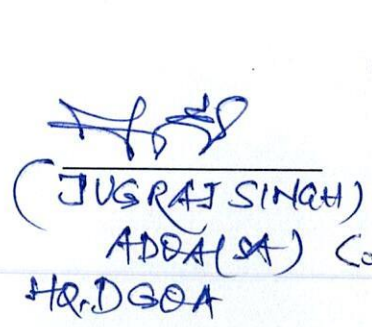 (JUGRAJ SINGH)
ADOA(SA)
HQ.DGOA